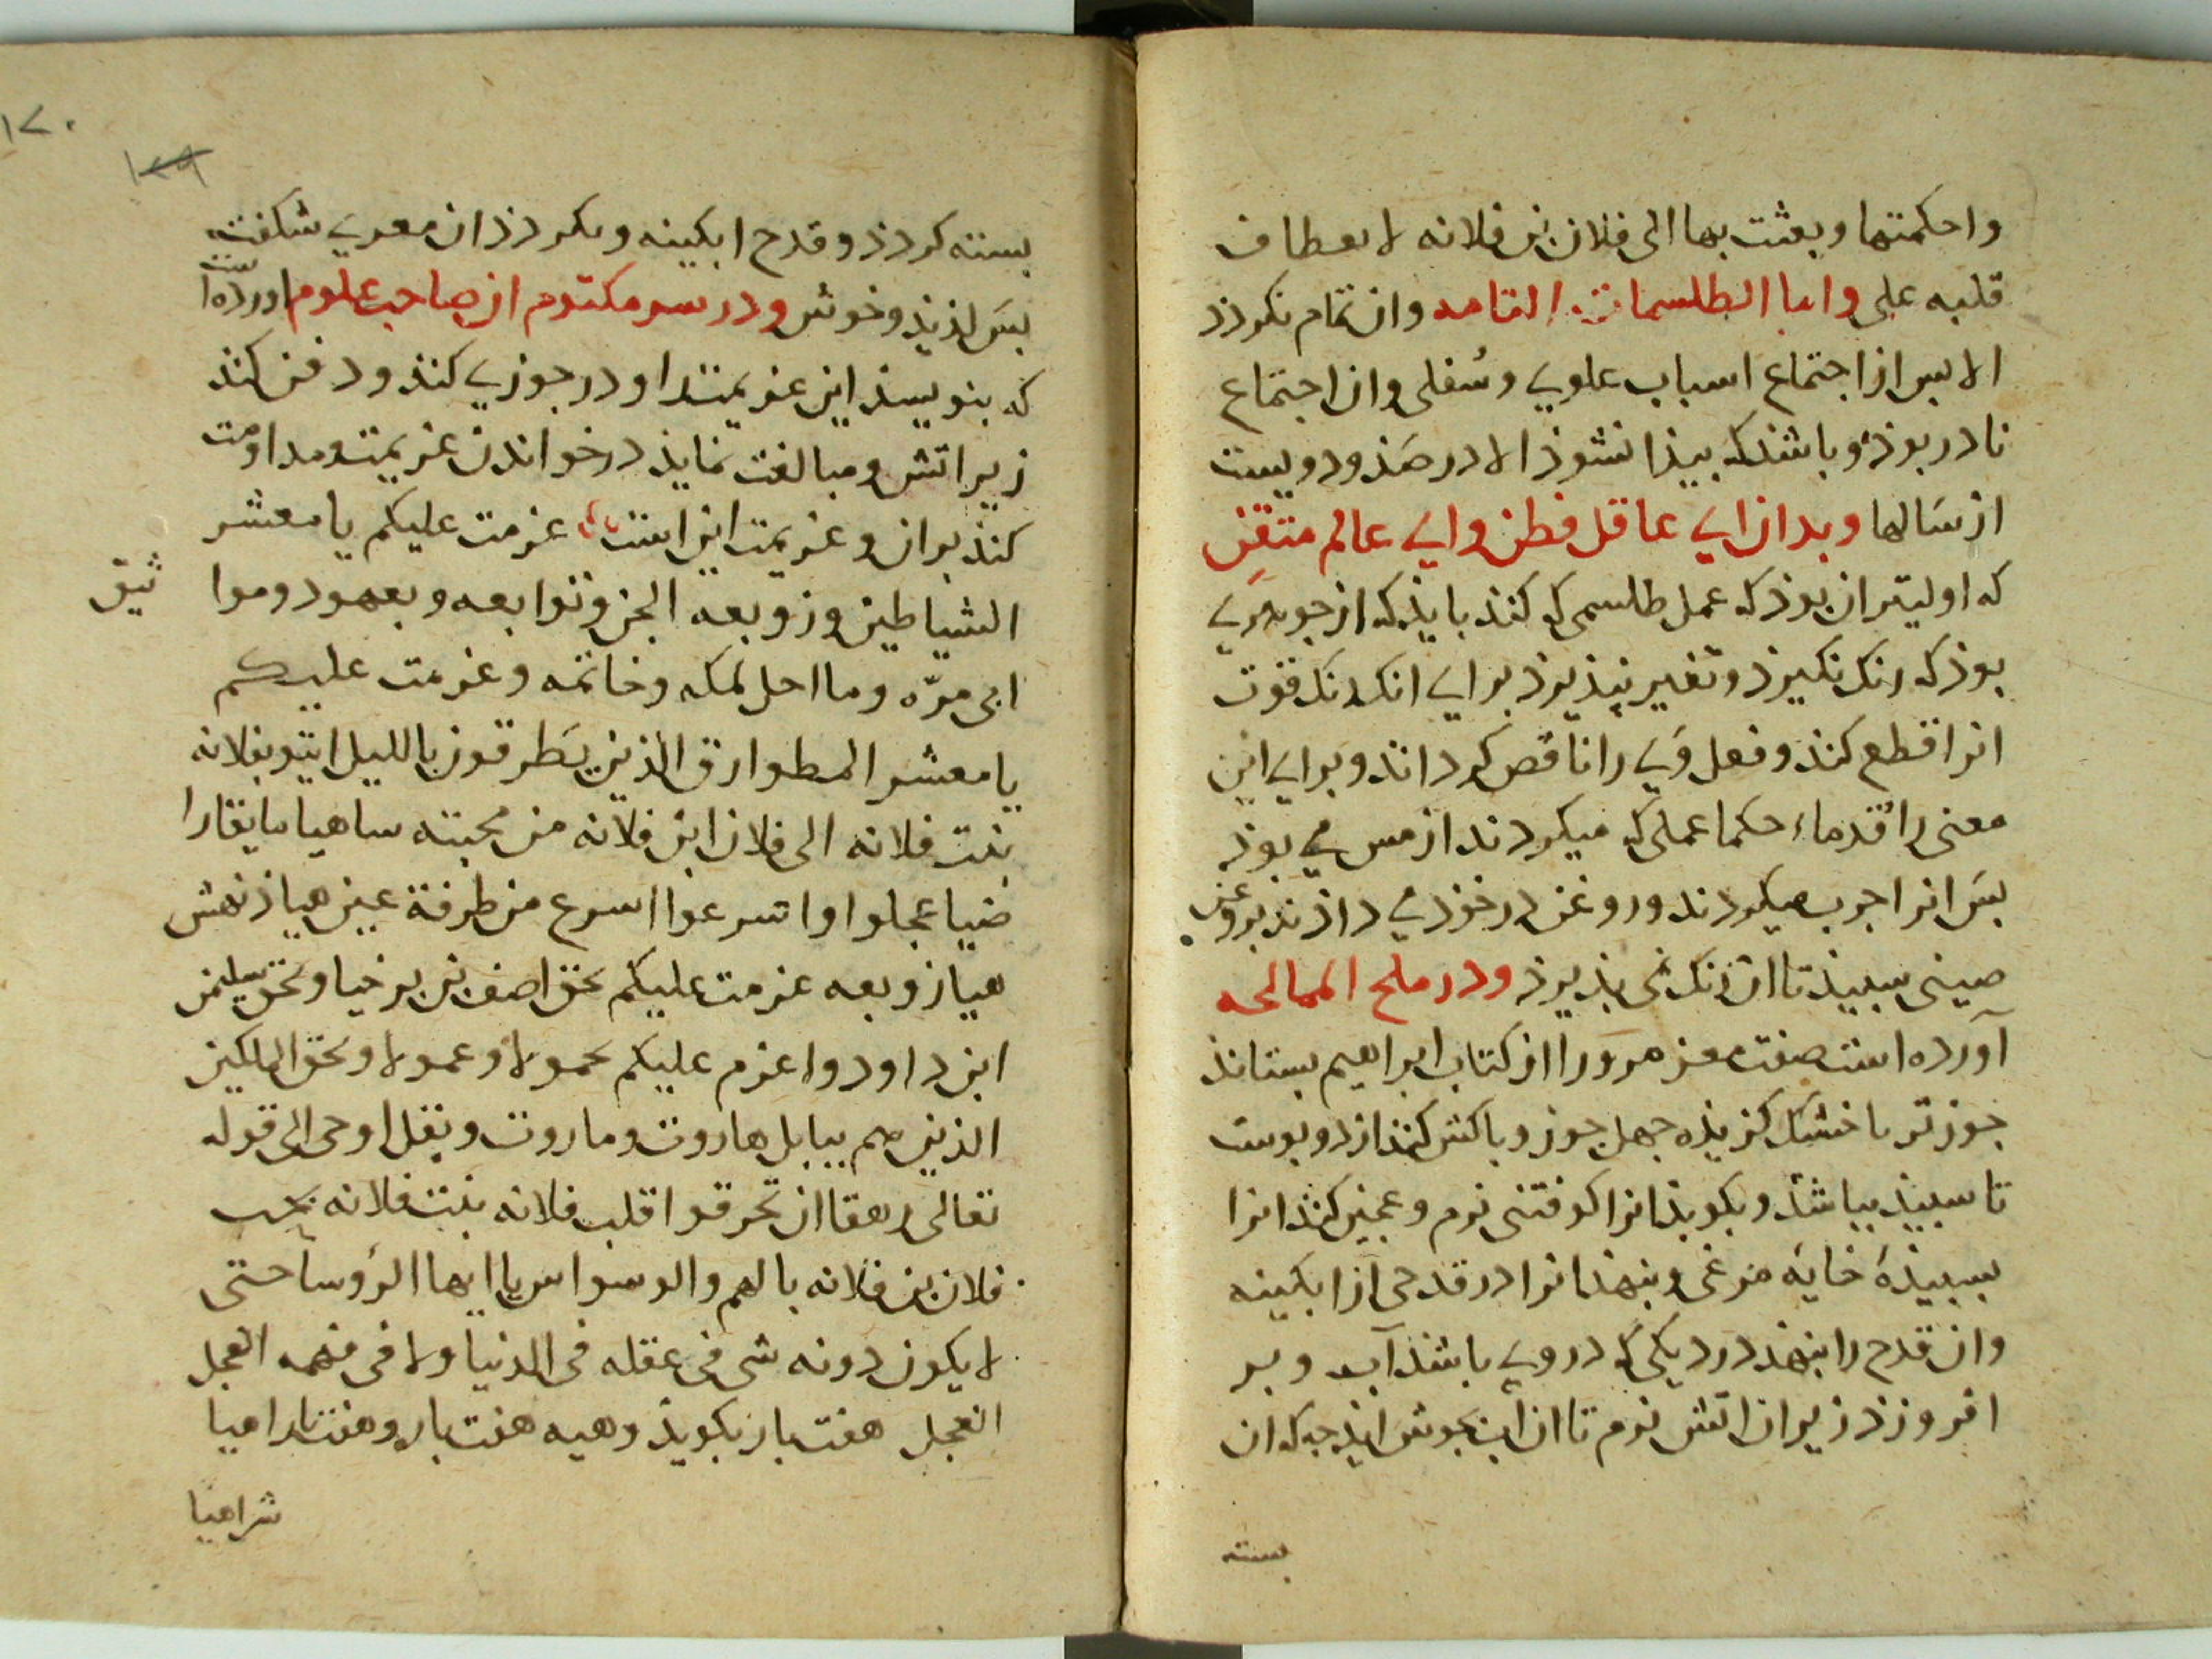 واحكمتها وبعثت بها الى فلان بن فلانه لانعطاف
قلبه على واما الطلسمات التامه وان تمام نكردذ
الا بس از اجتماع اسباب علوي وسفلى وان اجتماع
نادر بوذ وباشذكه بيذا نشوذ الا در صذ ودويست
از سالها وبدان اي عاقل فطن واي عالم متقن
كه اوليتر ان بوذ كه عمل طلسمى كه كنند بايذ كه از جوهري
بوذ كه زنك نكيرذ وتغير نپذيرذ براي انك زنك قوت
انرا قطع كند وفعل وي را ناقص كرداند وبراي اين
معنى را قدماء حكما عملى كه ميكردند از مس مي بوذ
بس انرا چرب ميكردند وروغن در خوذ مي داذند بروغن
صينى سبيذ تا ان زنك نمى بذيرذ ودر ملح الممالحه
آورده است صفت معز مرور را از كتاب ابراهيم بستانذ
جوز تر يا خشك كزيذه چهل جوز وپاكش كنند از دو پوست
تا سبيذ بباشذ وبكوبذ انرا كوفتنى نرم وعجين كنذ انرا
بسبيذه خايه مرغى وبنهذ انرا در قدحى از ابكينه
وان قدح را بنهذ در ديكى كه در وي باشذ آب وبر
افروزذ زير ان اتش نرم تا ان آب بجوش ايذ چه كه ان
بسته
١٧٠
١٦٩
بسته كردذ وقدح ابكينه وبكردذ ان معرى شكفت
بس لذيذ وخوش ودر سر مكتوم از صاحب علوم اورده است
كه بنويسذ اين عزيمت را ودر جوزي كنذ ودفن كنذ
زير اتش ومبالغت نمايذ در خواندن عزيمت ومداومت
كنذ بران وعزيمت اين است عزمت عليكم يا معشر
الشياطين وزوبعه الجن وتوابعه وبعهود وموا
ثيق
ابى مرّه وما احل لمكه وخاتمه وعزمت عليكم
يا معشر الطوارق الذين يطرقون بالليل ايتو بفلانه
بنت فلانه الى فلان ابن فلانه من محبته ساهيا مايقارا
ضيا عجلوا واسرعوا اسرع من طرفة عين هيا ذنهش
هيا زوبعه عزمت عليكم بحق اصف بن برخيا وبحق سليمن
ابن داود واعزم عليكم بحمولا وعمولا وبحق الملكين
الذين هم ببابل هاروت وماروت وبقل اوحى الى قوله
تعالى رهقا ان تحرقوا قلب فلانه بنت فلانه بحب
فلان بن فلانه بالهم والوسواس يا ايها الرؤسا حتى
لا يكون دونه شى فى عقله فى الدنيا ولا فى فهمه العجل
العجل هفت بار بكويذ وهيه هفت بار وهفت بار اهيا
شراهيا